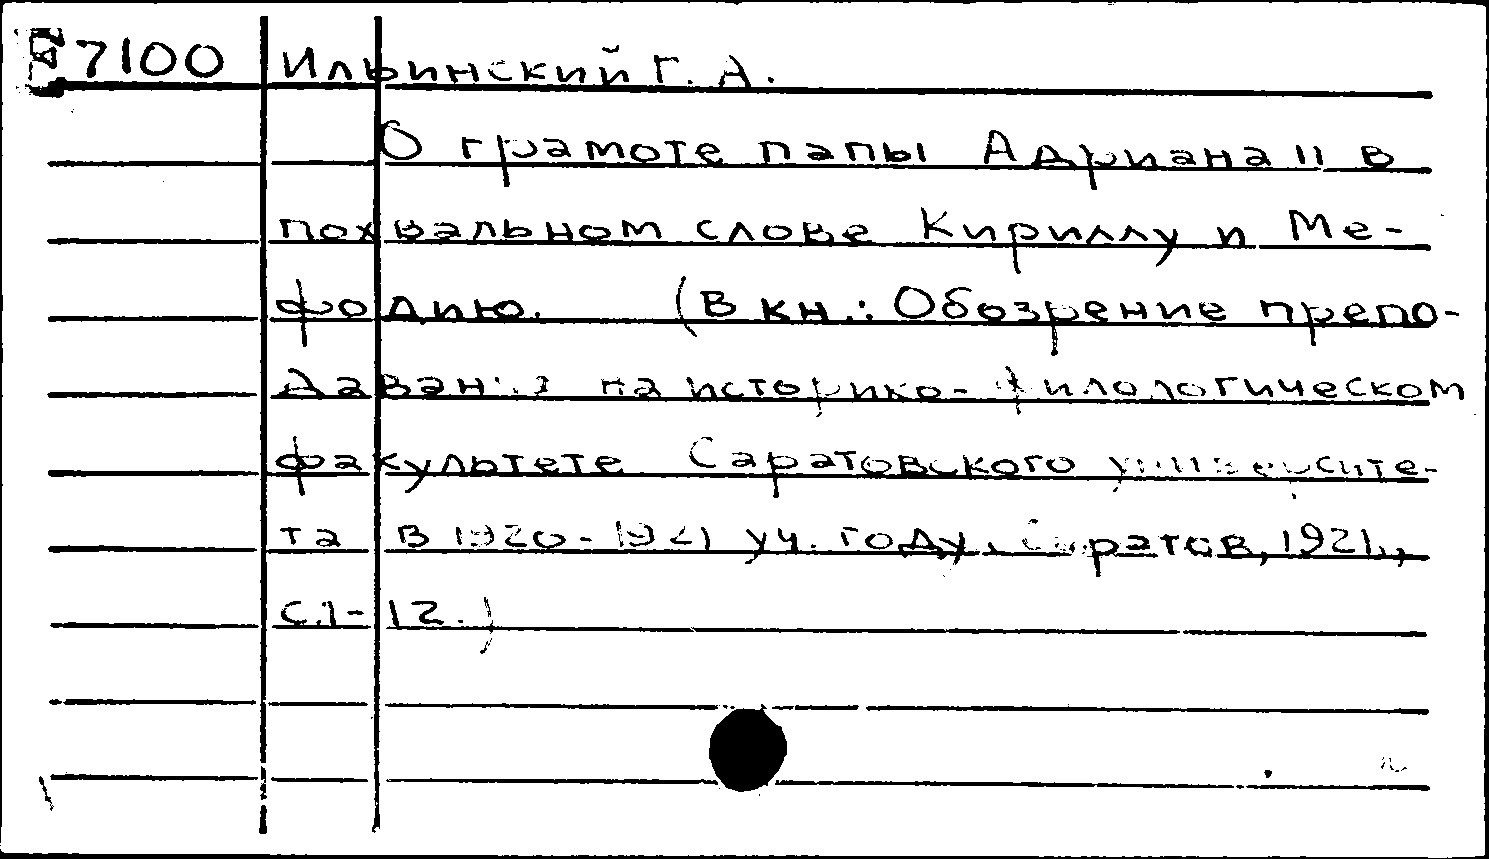 7100 Ильинский Г. А.
О грамоте папы Адриана II в
похвальном слове Кириллу и Ме-
фодию. (В кн.: Обозрение препо-
давания на историко-филологическом
факультете Саратовского университе-
та в 1920-1921 уч. году. Саратов, 1921.,
с.1-12.)